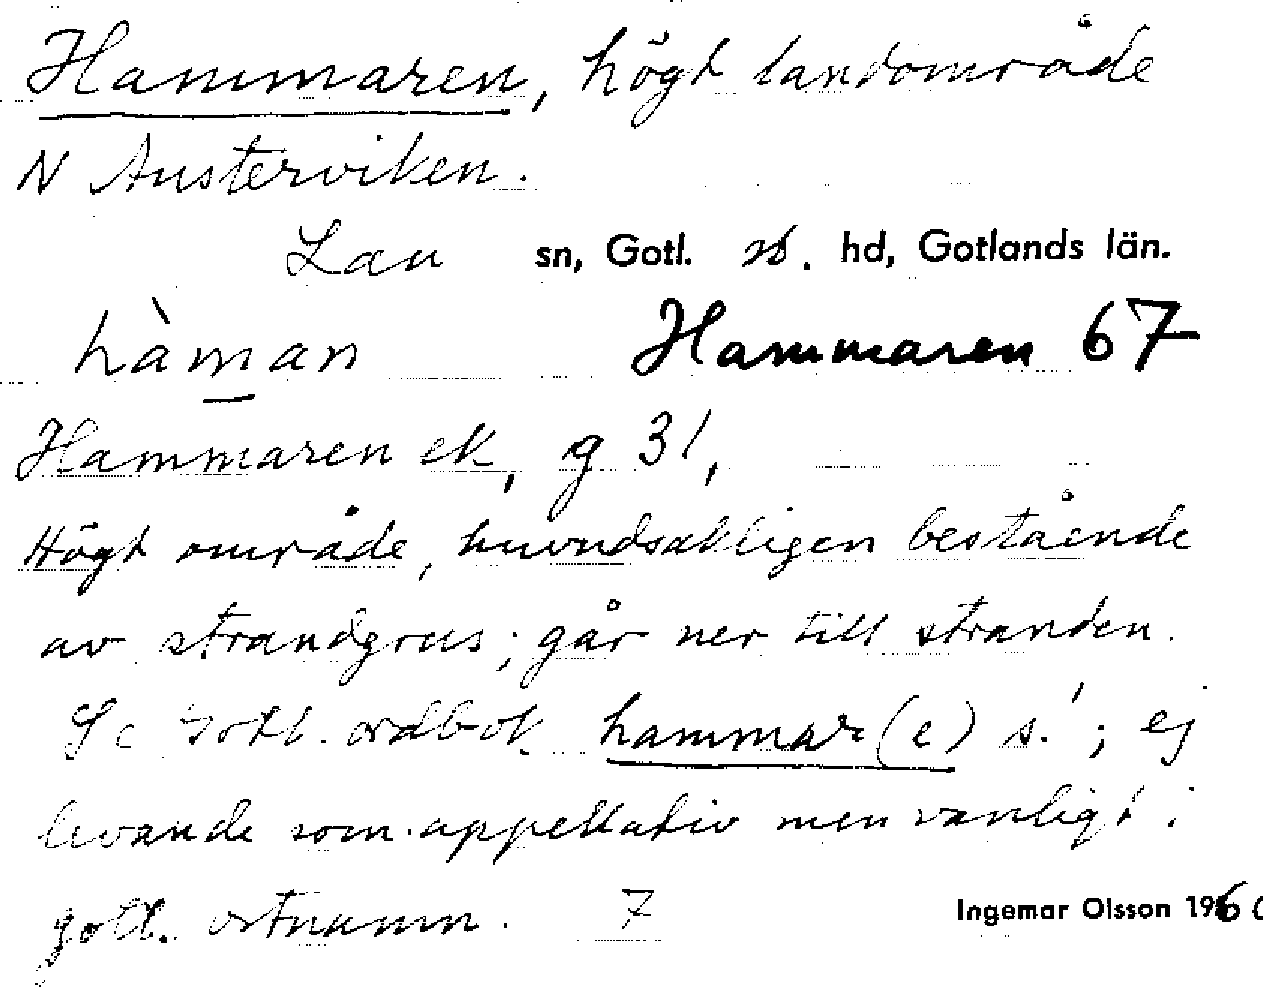 Hammaren, högt landområde
N Austerviken.
Lau sn, Gotl. s. hd, Gotlands län.
hàman Hammaren 67
Hammaren ek, g 31,
Högt område, huvudsakligen bestående
av strandgrus; går ner till stranden.
Se Gotl. ordbok hammar(e) s.¹; ej
levande som appellativ men vanligt i
gotl. ortnamn. 7
Ingemar Olsson 196